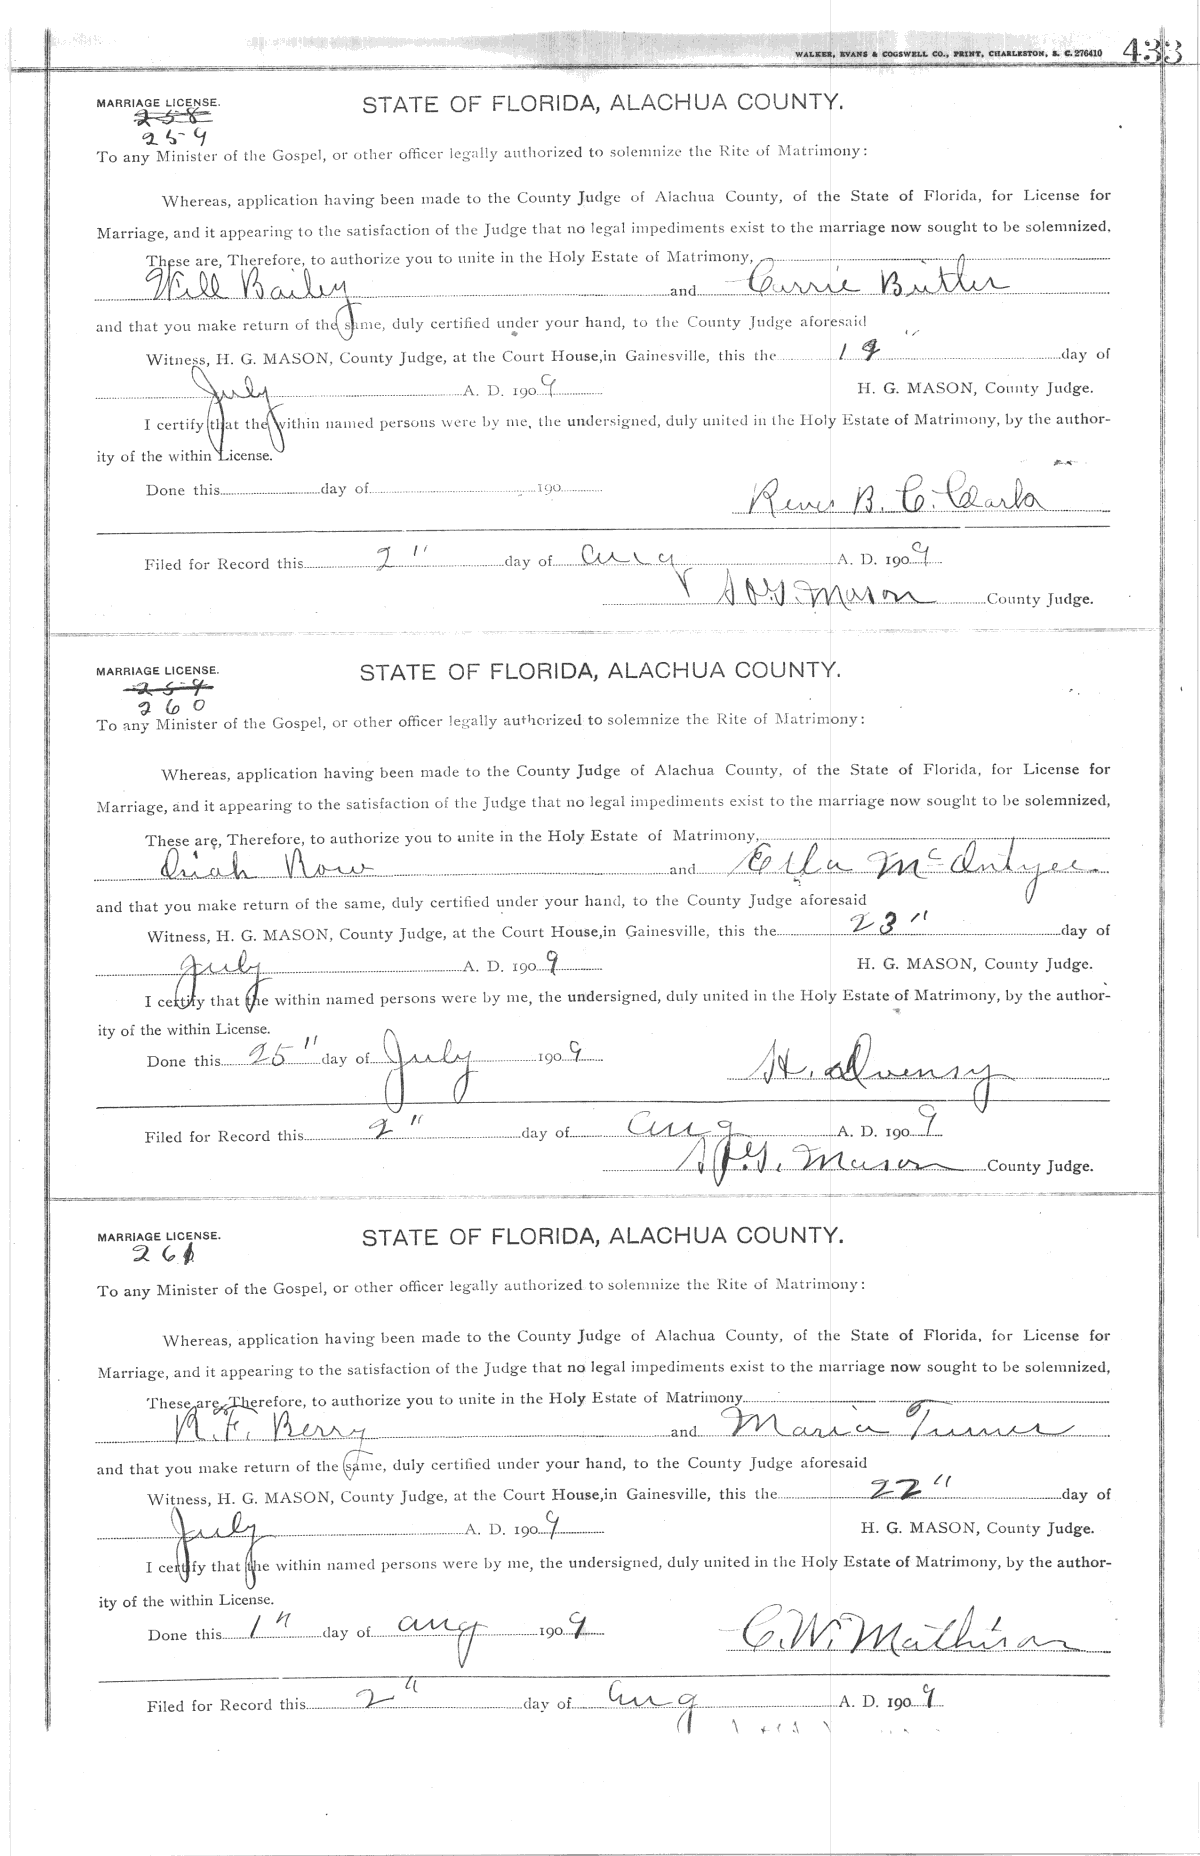 WALKER, EVANS & COGSWELL CO., PRINT, CHARLESTON, S. C. 276410 433
MARRIAGE LICENSE. STATE OF FLORIDA, ALACHUA COUNTY.
258
259
To any Minister of the Gospel, or other officer legally authorized to solemnize the Rite of Matrimony:
Whereas, application having been made to the County Judge of Alachua County, of the State of Florida, for License for
Marriage, and it appearing to the satisfaction of the Judge that no legal impediments exist to the marriage now sought to be solemnized.
These are, Therefore, to authorize you to unite in the Holy Estate of Matrimony,
Will Bailey and Carrie Butler
and that you make return of the same, duly certified under your hand, to the County Judge aforesaid
Witness, H. G. MASON, County Judge, at the Court House, in Gainesville, this the 19" day of
July A. D. 1909 H. G. MASON, County Judge.
I certify that the within named persons were by me, the undersigned, duly united in the Holy Estate of Matrimony, by the author-
ity of the within License.
Done this day of 190
B. C. Clark
Filed for Record this 2" day of Aug A. D. 1909
H. G. Mason County Judge.
MARRIAGE LICENSE. STATE OF FLORIDA, ALACHUA COUNTY.
259
260
To any Minister of the Gospel, or other officer legally authorized to solemnize the Rite of Matrimony:
Whereas, application having been made to the County Judge of Alachua County, of the State of Florida, for License for
Marriage, and it appearing to the satisfaction of the Judge that no legal impediments exist to the marriage now sought to be solemnized,
These are, Therefore, to authorize you to unite in the Holy Estate of Matrimony,
and Ella McIntyre
and that you make return of the same, duly certified under your hand, to the County Judge aforesaid
Witness, H. G. MASON, County Judge, at the Court House, in Gainesville, this the 23" day of
July A. D. 1909 H. G. MASON, County Judge.
I certify that the within named persons were by me, the undersigned, duly united in the Holy Estate of Matrimony, by the author-
ity of the within License.
Done this 25" day of July 1909 H.
Filed for Record this 2" day of Aug A. D. 1909
H. G. Mason County Judge.
MARRIAGE LICENSE. STATE OF FLORIDA, ALACHUA COUNTY.
261
To any Minister of the Gospel, or other officer legally authorized to solemnize the Rite of Matrimony:
Whereas, application having been made to the County Judge of Alachua County, of the State of Florida, for License for
Marriage, and it appearing to the satisfaction of the Judge that no legal impediments exist to the marriage now sought to be solemnized,
These are, Therefore, to authorize you to unite in the Holy Estate of Matrimony
R. F. Berry and Maria Turner
and that you make return of the same, duly certified under your hand, to the County Judge aforesaid
Witness, H. G. MASON, County Judge, at the Court House, in Gainesville, this the 22" day of
July A. D. 1909 H. G. MASON, County Judge.
I certify that the within named persons were by me, the undersigned, duly united in the Holy Estate of Matrimony, by the author-
ity of the within License.
Done this 1" day of Aug 1909 C. W. Mathison
Filed for Record this 2" day of Aug A. D. 1909